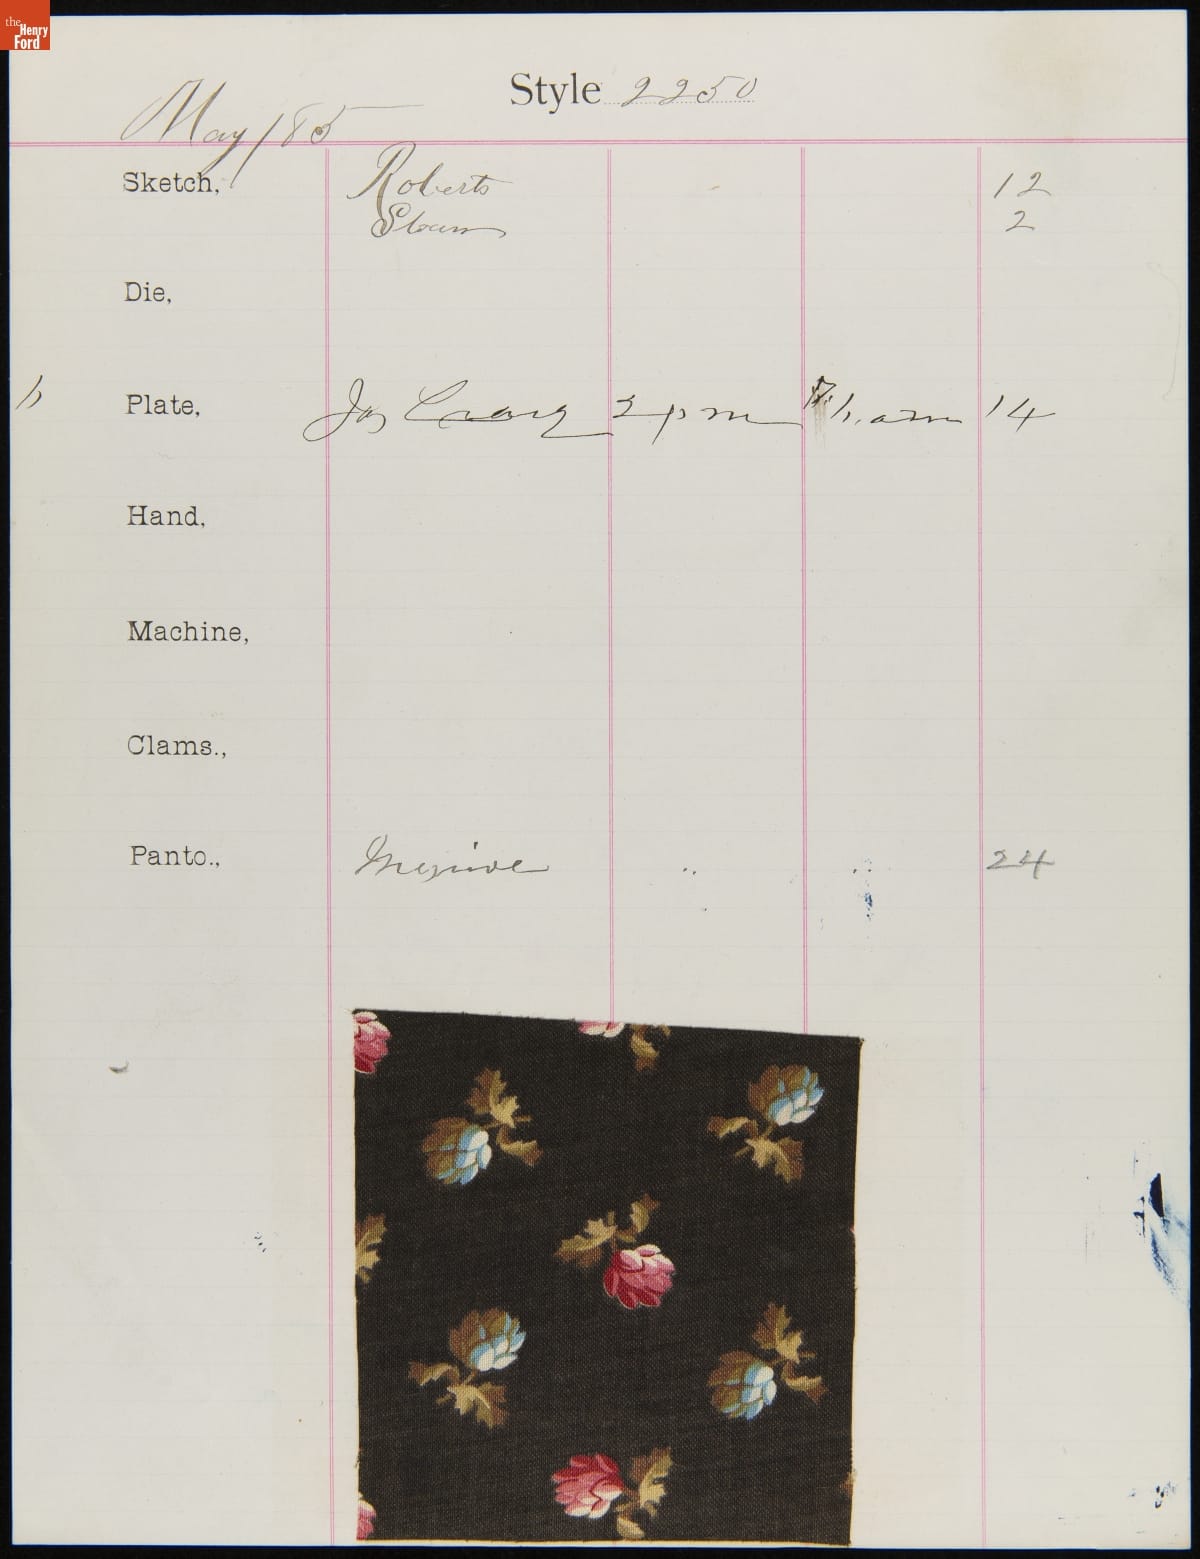 the
Henry
Ford
Style 2250
May / 85
Sketch, Roberts 12
2
Die,
Plate, Jas Craig 2 pm h. am 14
Hand,
Machine,
Clams.,
Panto., 24